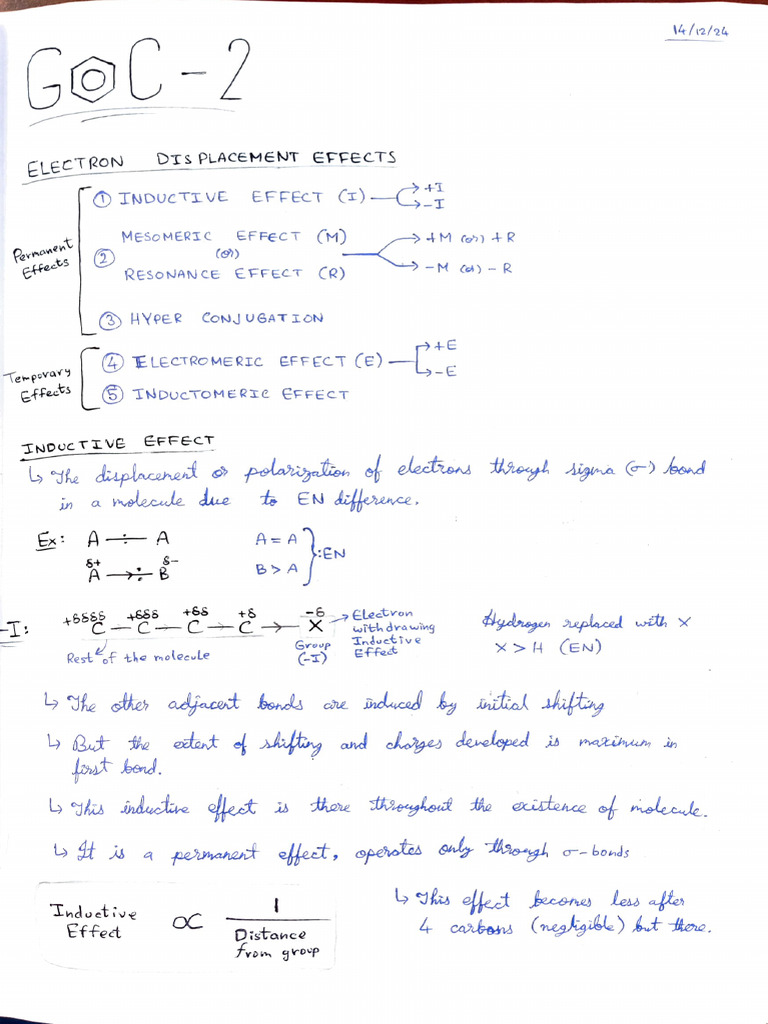 14/12/24
GOC-2
ELECTRON DISPLACEMENT EFFECTS
Permanent Effects
① INDUCTIVE EFFECT (I) → +I
→ -I
② MESOMERIC EFFECT (M)
(or)
RESONANCE EFFECT (R)
→ +M (or) +R
→ -M (or) -R
③ HYPER CONJUGATION
Temporary Effects
④ ELECTROMERIC EFFECT (E) → +E
→ -E
⑤ INDUCTOMERIC EFFECT
INDUCTIVE EFFECT
↳ The displacement or polarization of electrons through sigma (σ) bond
in a molecule due to EN difference.
Ex: A —:— A A = A
δ+ δ-
A →: B B > A
:EN
+δδδδ +δδδ +δδ +δ -δ
-I: C — C — C — C → X → Electron
withdrawing
Inductive
Effect
Rest of the molecule
Group
(-I)
Hydrogen replaced with X
X > H (EN)
↳ The other adjacent bonds are induced by initial shifting
↳ But the extent of shifting and charges developed is maximum in
first bond.
↳ This inductive effect is there throughout the existence of molecule.
↳ It is a permanent effect, operates only through σ-bonds
Inductive
Effect ∝ 1
Distance
from group
↳ This effect becomes less after
4 carbons (negligible) but there.